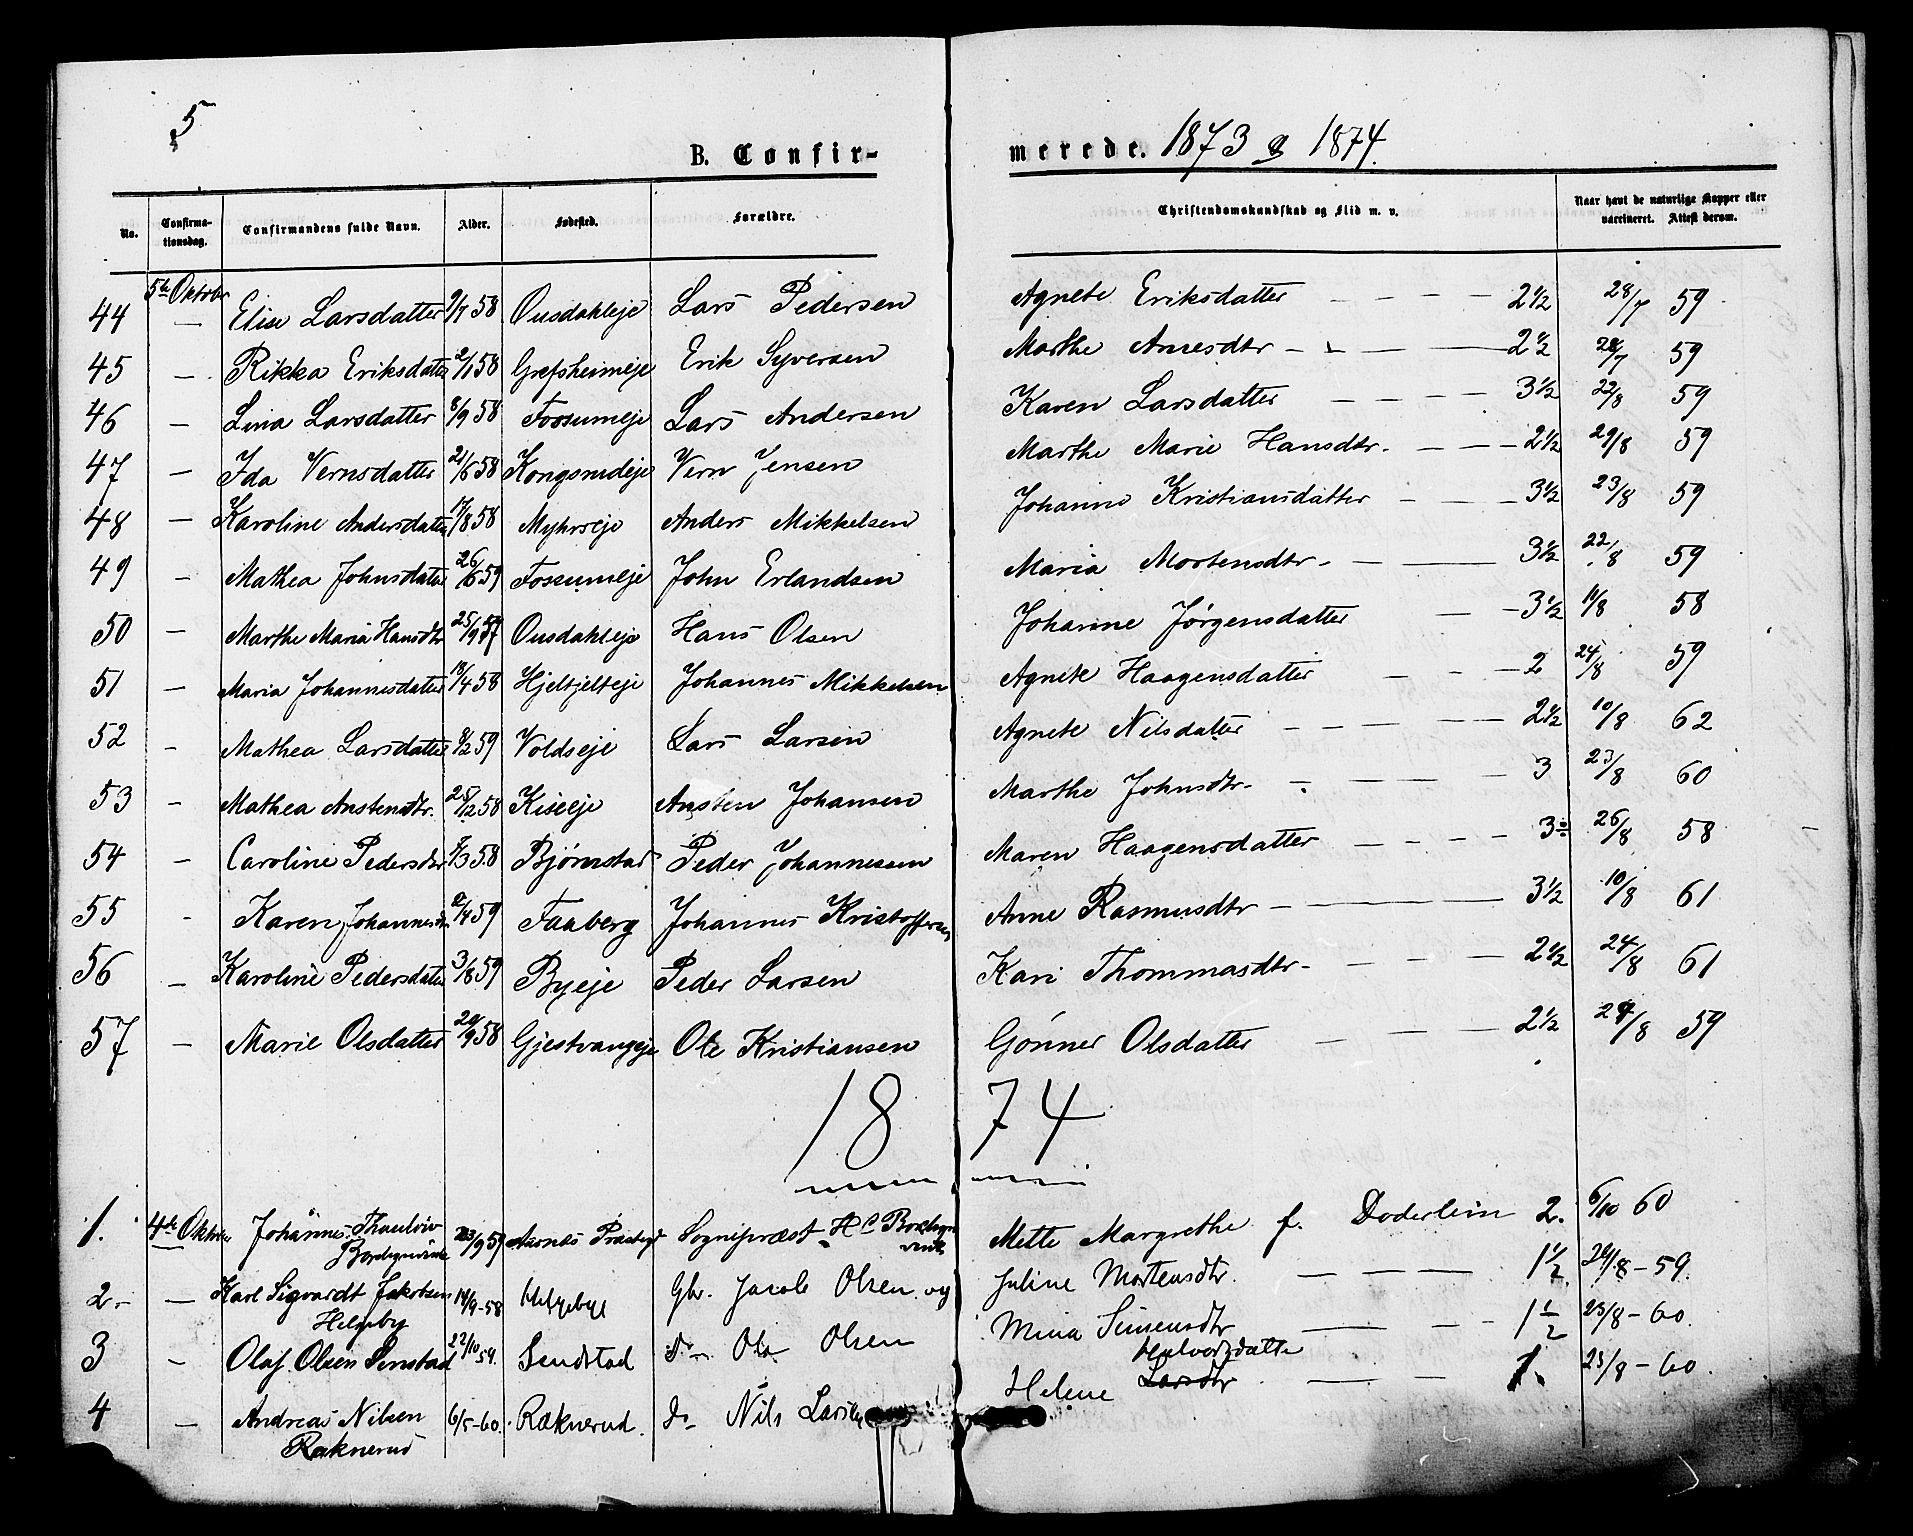 5
B. Confir- merede. 1873 & 1874.
No. Confirma-tionsdag. Confirmandens fulde Navn. Alder. Fødested. Forældre. Christendomskundskab og Flid m. v. Naar havt de naturlige Kopper eller vaccineret. Attest derom.
44 5te Oktober Elise Larsdatter 9/7 58 Ousdahleje Lars Pedersen Agnete Eriksdatter - - - - 2 1/2 28/7 59
45 — Rikka Eriksdatter 2/1 58 Grefsheimeje Erik Syversen Marthe Arnesdtr - - - 2 1/2 28/7 59
46 — Lina Larsdatter 8/9 58 Fossumeje Lars Andersen Karen Larsdatter - - - - 3 1/2 22/8 59
47 — Ida Vernsdatter 21/6 58 Kongsrudeje Vern Jensen Marthe Marie Hansdtr. - - - 2 1/2 29/8 59
48 — Karoline Andersdatter 17/8 58 Myhrseje Anders Mikkelsen Johanne Kristiansdatter - - - 3 1/2 23/8 59
49 — Mathea Johnsdatter 26/6 59 Fossumeje John Erlandsen Maria Mortensdtr. - - 3 1/2 22/8 59
50 — Marthe Maria Hansdtr 25/9 57 Ousdahleje Hans Olsen Johanne Jørgensdatter - - 3 1/2 11/8 58
51 — Maria Johannesdatter 13/4 58 Hjeltjelteje Johannes Mikkelsen Agnete Haagensdatter - - - 2 24/8 59
52 — Mathea Larsdatter 8/2 59 Voldseje Lars Larsen Agnete Nilsdatter - - - - 2 1/2 10/8 62
53 — Mathea Anstensdtr. 28/12 58 Kiseeje Ansten Johansen Marthe Johnsdtr. - - - - 3 23/8 60
54 — Caroline Pedersdtr 7/3 58 Bjørnstad Peder Johannessen Maren Haagensdatter - - - - 3 26/8 58
55 - Karen Johannesdtr 2/4 59 Faaberg Johannes Kristoffersen Anne Rasmusdtr - - - 3 1/2 10/8 61
56 — Karoline Pedersdatter 3/8 59 Byeje Peder Larsen Kari Thommasdtr. - - - - 2 1/2 24/8 61
57 — Marie Olsdatter 20/9 58 Gjestvangeje Ole Kristiansen Gønner Olsdatter - - - 2 1/2 28/8 59
1874
1. 4de Oktober Johannes Thaulow 23/9 59 Aasnæs Præstegd Sognepræst H. C. Mette Margrethe f. Døderlein 2. 6/10 60
2. — Karl Sigvardt Jakobsen Helgeby 14/9-58 Helgebye Gbr. Jacob Olsen og Juline Mortensdtr. - - - 1 1/2 24/8-59.
3 — Olaf Olsen Senstad 22/10 59. Sendstad do Ole Olsen Mina Simensdtr - - - 1 1/2 23/8-60.
4 — Andreas Nilsen Raknerud 6/5-60. Ræknerud. do Nils Helene Larsdtr Halvorsdatter - - 1. 23/8-60.